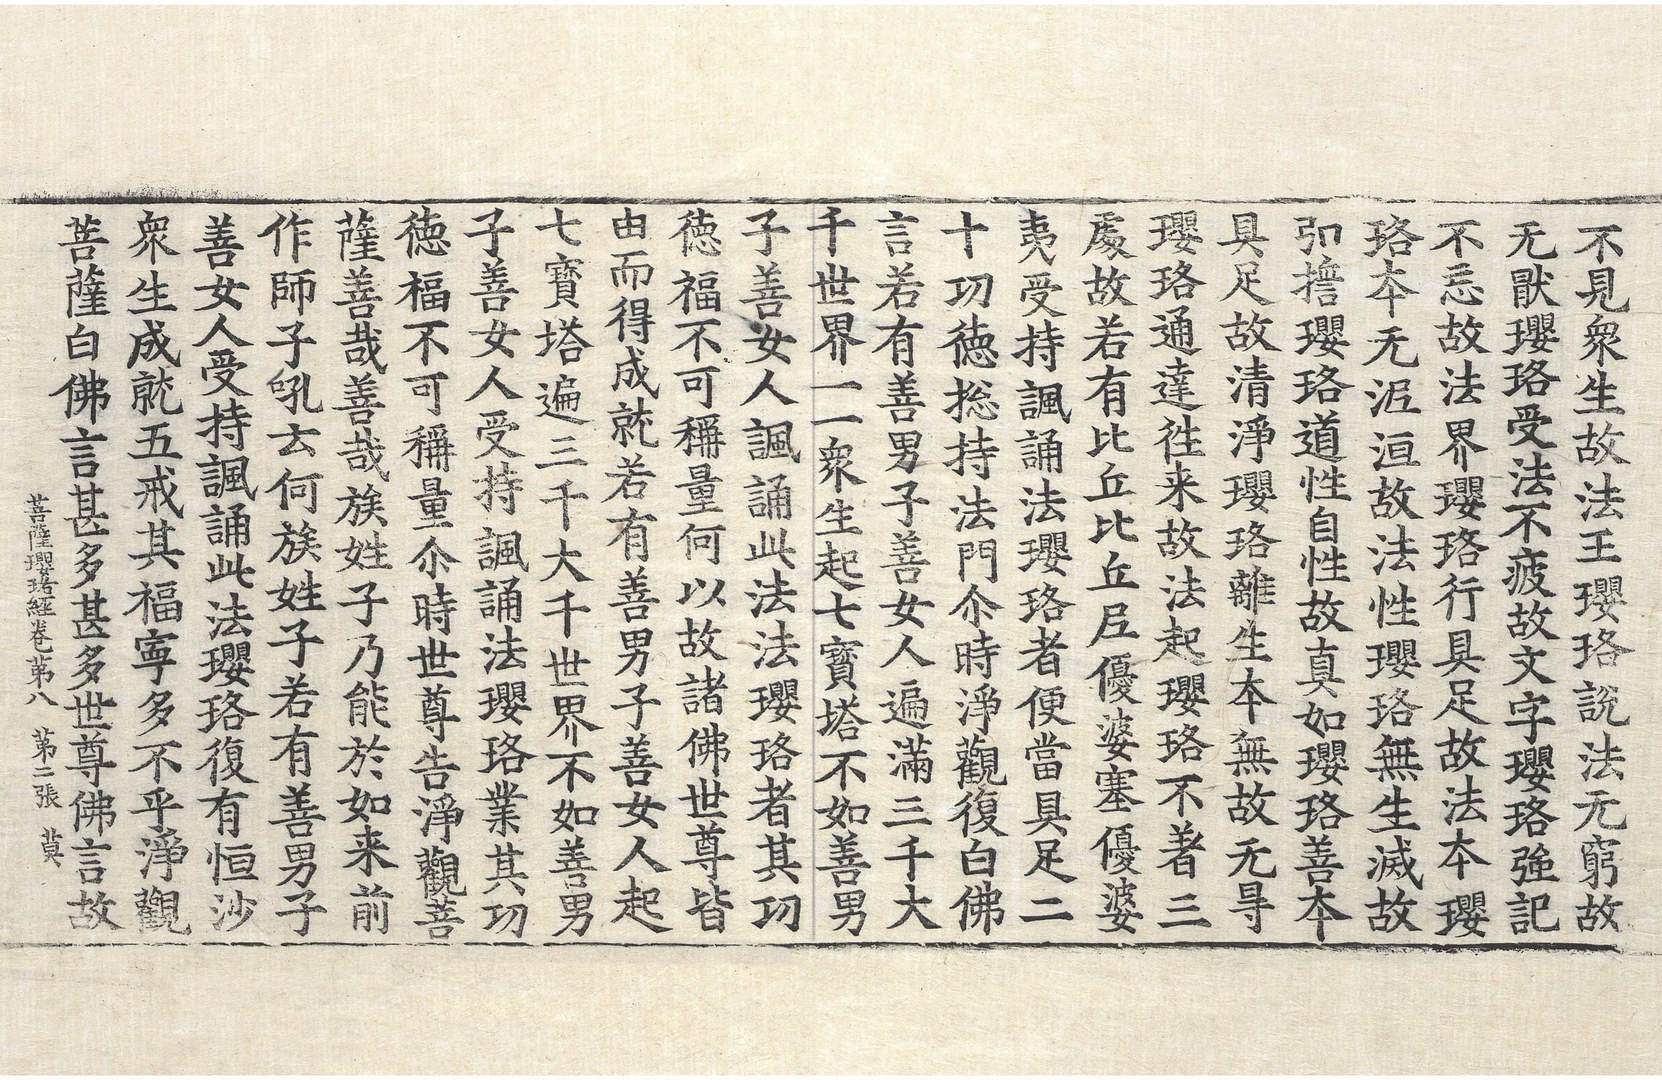 不見衆生故法王瓔珞說法无窮故
无猒瓔珞受法不疲故文字瓔珞強記
不忘故法界瓔珞行具足故法本瓔
珞本无泥洹故法性瓔珞無生滅故
弘擔瓔珞道性自性故真如瓔珞善本
具足故清淨瓔珞離生本無故无㝵
瓔珞通達徃来故法起瓔珞不著三
處故若有比丘比丘尼優婆塞優婆
夷受持諷誦法瓔珞者便當具足二
十功徳捴持法門尒時淨觀復白佛
言若有善男子善女人遍滿三千大
千世界一一衆生起七寳塔不如善男
子善女人諷誦此法法瓔珞者其功
徳福不可稱量何以故諸佛世尊皆
由而得成就若有善男子善女人起
七寳塔遍三千大千世界不如善男
子善女人受持諷誦法瓔珞業其功
徳福不可稱量尒時世尊告淨觀菩
薩善哉善哉族姓子乃能於如来前
作師子吼云何族姓子若有善男子
善女人受持諷誦此法瓔珞復有恒沙
衆生成就五戒其福寧多不乎淨觀
菩薩白佛言甚多甚多世尊佛言故
菩薩瓔珞經卷苐八　苐二張　莫